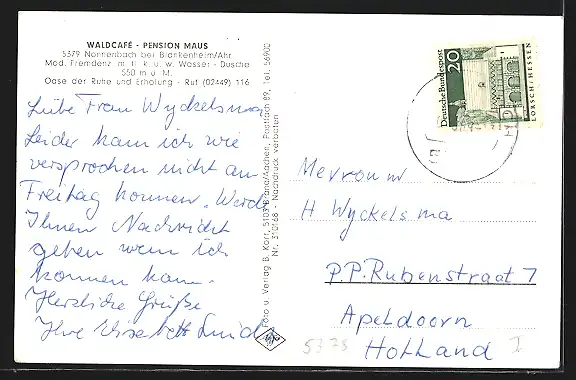 WALDCAFÉ - PENSION MAUS
5379 Nonnenbach bei Blankenheim/Ahr
Mod. Fremdenz. m. fl. k. u. w. Wasser - Dusche
550 m ü. M.
Oase der Ruhe und Erholung - Ruf (02449) 116
Liebe Frau Wyckelsma
Leider kann ich wie
versprochen nicht am
Freitag kommen. Werde
Ihnen Nachricht
geben wenn ich
kommen kann.
Herzliche Grüße
Ihre Elisabeth
Foto u. Verlag B. Korr, 5105 Brand/Aachen, Postfach 89, Tel. 56900
Nr. 310168 - Nachdruck verboten
Deutsche Bundespost
20
LORSCH/HESSEN
Mevrouw
H Wyckelsma
P.P. Rubenstraat 7
Apeldoorn
Holland